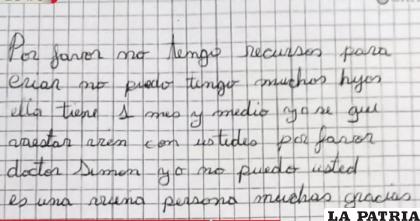 Por favor no tengo recursos para
criar no puedo tengo muchos hijos
ella tiene 1 mes y medio yo se que
vaestar vien con ustedes por favor
doctor Simon yo no puedo usted
es una vuena persona muchas gracias
LA PATRIA